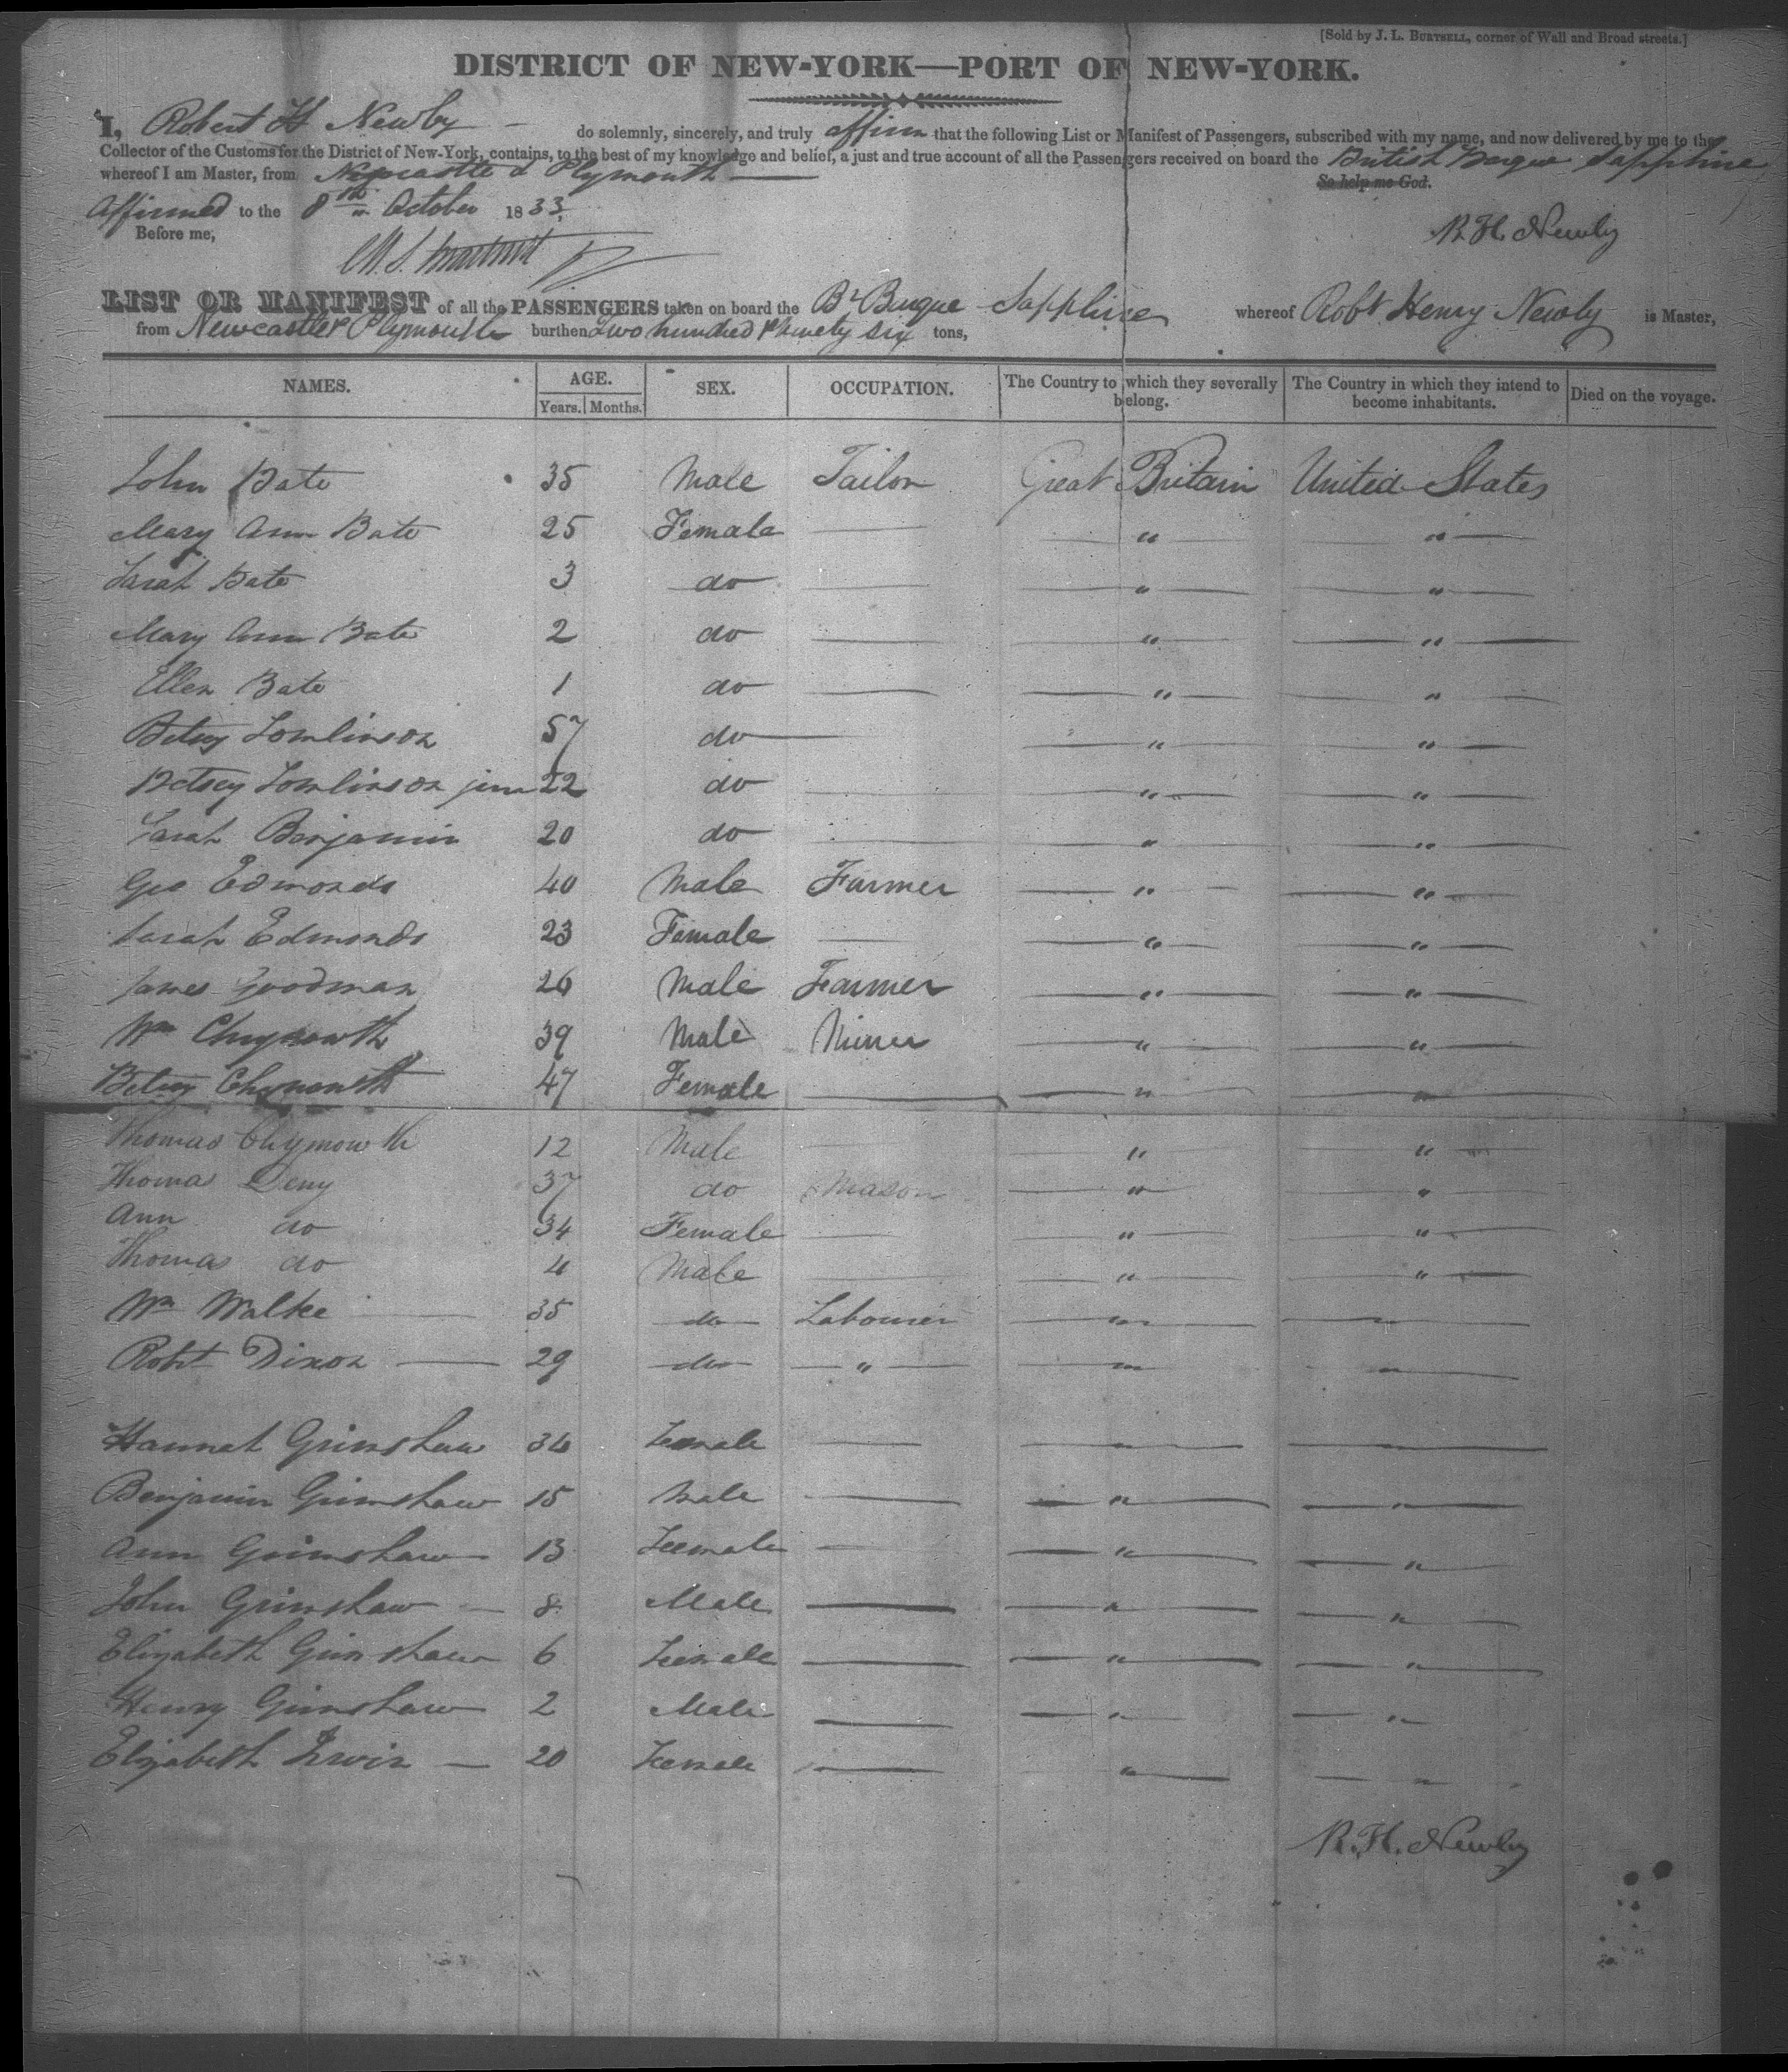 [Sold by J. L. BURTSELL, corner of Wall and Broad streets.]
DISTRICT OF NEW-YORK—PORT OF NEW-YORK.
I, Robert H Newby do solemnly, sincerely, and truly affirm that the following List or Manifest of Passengers, subscribed with my name, and now delivered by me to the
Collector of the Customs for the District of New-York, contains, to the best of my knowledge and belief, a just and true account of all the Passengers received on board the British Barque Sapphire
whereof I am Master, from Newcastle & Plymouth
So help me God.
Affirmed to the 8th October 1833,
Before me,
R. H. Newby
LIST OR MANIFEST of all the PASSENGERS taken on board the Br Barque Sapphire whereof Robt Henry Newby is Master,
from Newcastle & Plymouth burthen Two hundred & ninety six tons,
NAMES. AGE. SEX. OCCUPATION. The Country to which they severally belong. The Country in which they intend to become inhabitants. Died on the voyage.
Years. Months.
John Bate 35 Male Tailor Great Britain United States
Mary Ann Bate 25 Female — " "
Sarah Bate 3 do — " "
Mary Ann Bate 2 do — " "
Ellen Bate 1 do — " "
Betsey Tomlinson 57 do — " "
Betsey Tomlinson junr 22 do — " "
Sarah Benjamin 20 do — " "
Geo Edmonds 40 Male Farmer " "
Sarah Edmonds 23 Female — " "
James Goodman 26 Male Farmer " "
Wm Chynowth 39 Male Miner " "
Betsey Chynowth 47 Female — " "
Thomas Chynowth 12 Male — " "
Thomas Deny 37 do Mason " "
Ann do 34 Female — " "
Thomas do 4 Male — " "
Wm Walke 35 do Labourer " "
Robt Dixon 29 do " " "
Hannah Grimshaw 36 Female — " —
Benjamin Grimshaw 15 Male — " "
Ann Grimshaw 13 Female — " "
John Grimshaw 8 Male — " "
Elizabeth Grimshaw 6 Female — " "
Henry Grimshaw 2 Male — " "
Elizabeth Irwin 20 Female — " "
R. H. Newby